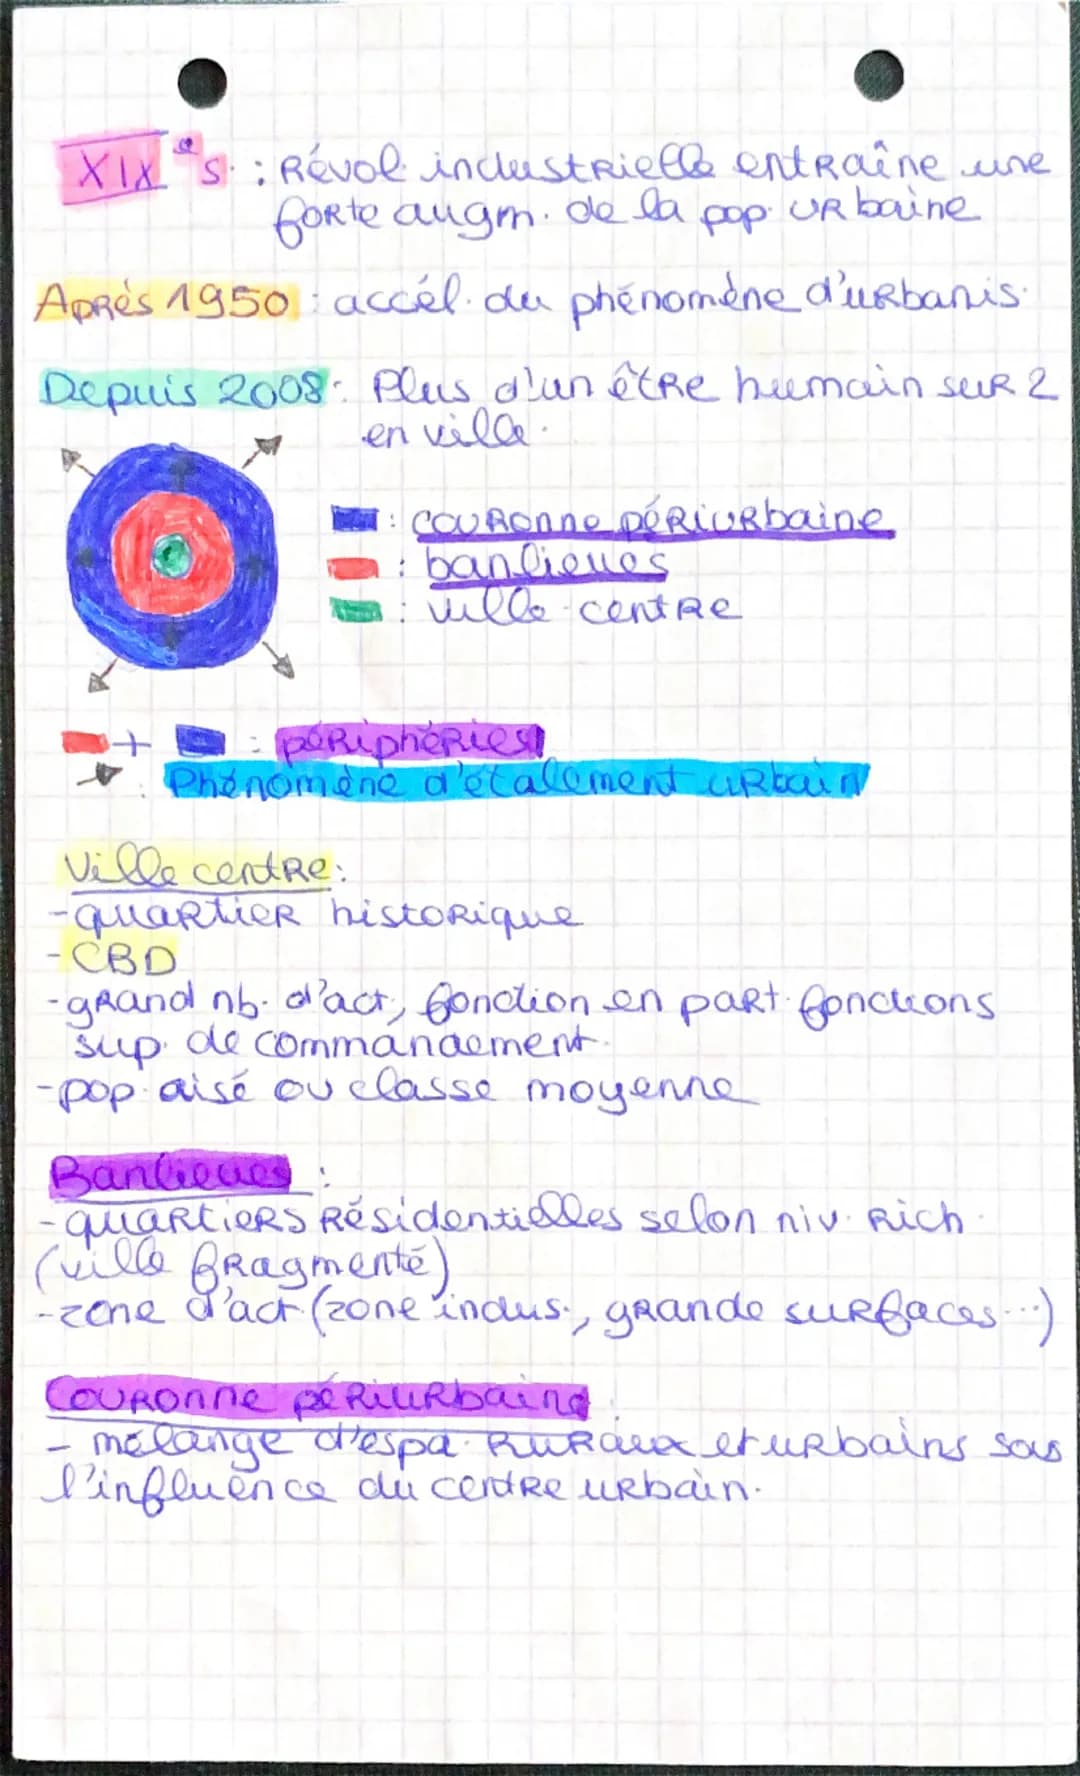 XIXe s. : Révol. industrielle entraîne une
forte augm. de la pop. urbaine
Après 1950 : accél. du phénomène d'urbanis.
Depuis 2008 : Plus d'un être humain sur 2
en ville.
: couronne périurbaine
: banlieues
: ville-centre
+ : périphéries
: Phénomène d'étalement urbain
Ville centre :
- quartier historique
- CBD
- grand nb. d'act., fonction en part. fonctions
sup. de commandement.
- pop. aisé ou classe moyenne
Banlieues :
- quartiers résidentielles selon niv. rich.
(ville fragmenté)
- zone d'act. (zone indus., grande surfaces...)
Couronne périurbaine :
- mélange d'espa. ruraux et urbains sous
l'influence du centre urbain.